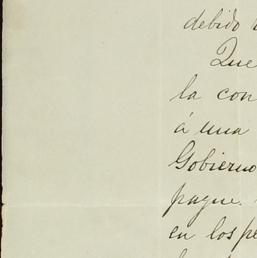 debido
Que
la con
á una
Gobierno
pague.
en los pe